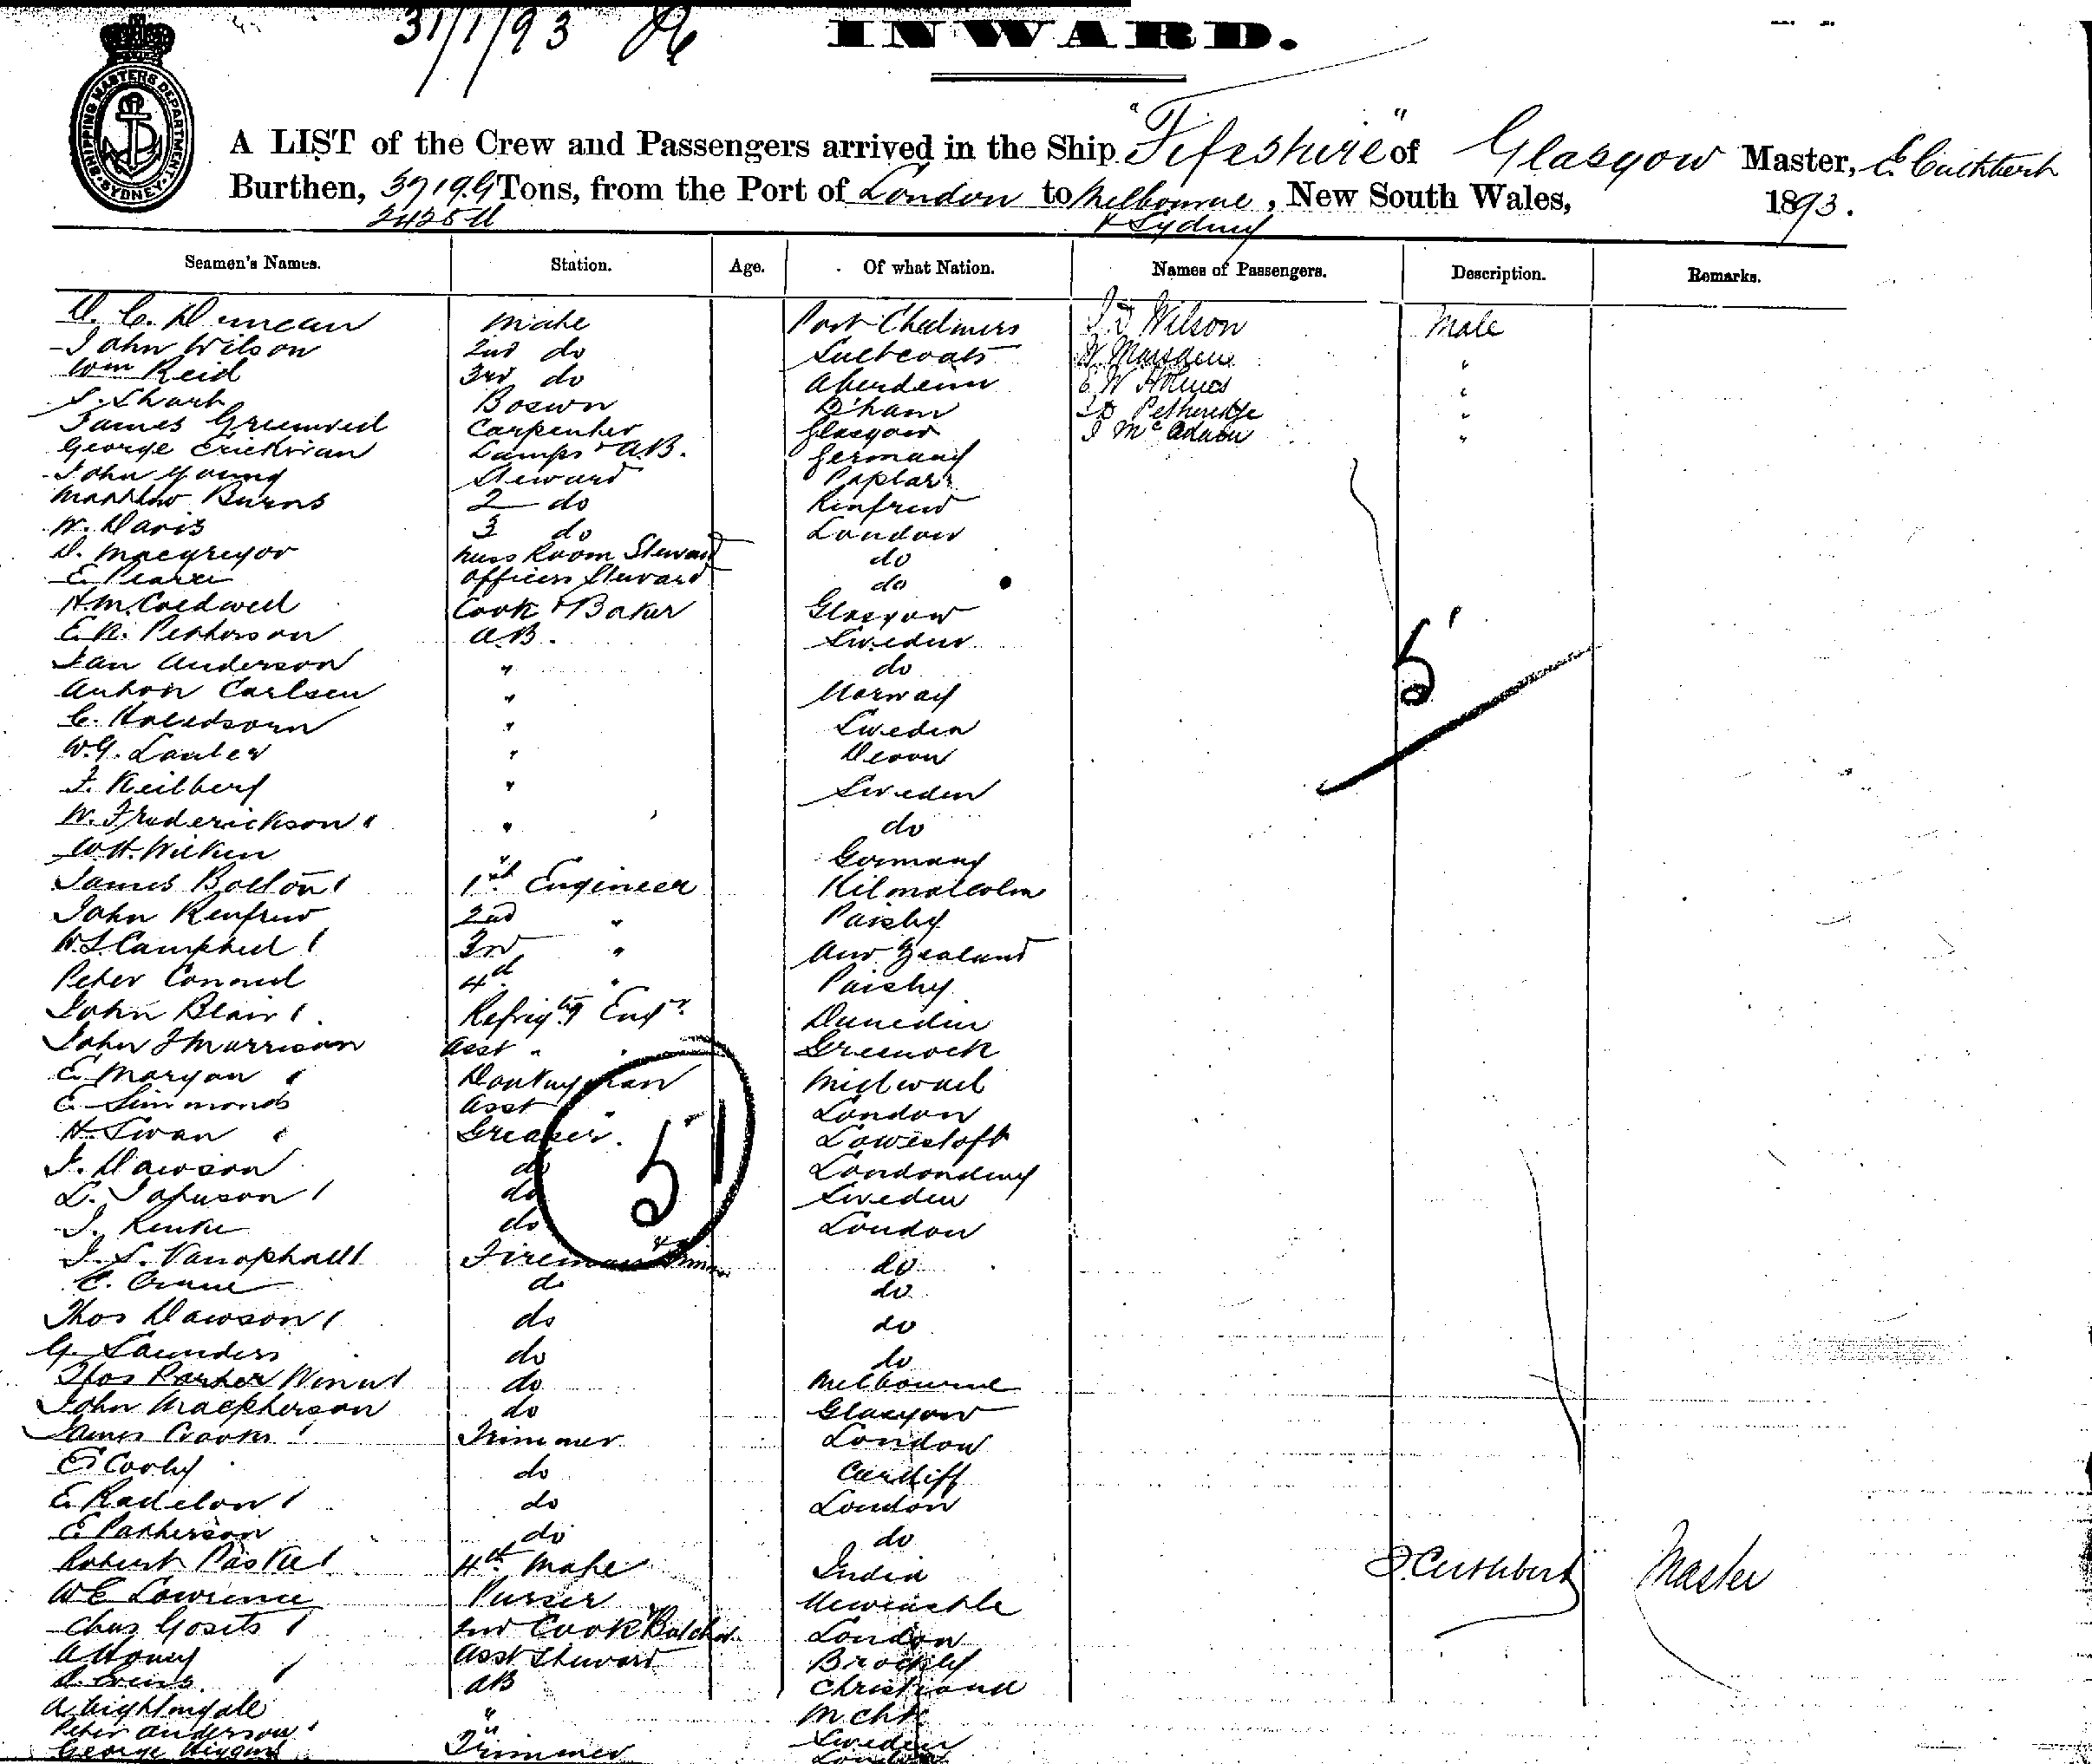 31/1/93
INWARD.
SHIPPING MASTERS DEPARTMENT SYDNEY
A LIST of the Crew and Passengers arrived in the Ship "Fifeshire" of Glasgow Master, E. Cuthbert
Burthen, 3719.G Tons, from the Port of London to Melbourne, New South Wales, 1893.
& Sydney
Seamen's Names. Station. Age. Of what Nation. Names of Passengers. Description. Remarks.
D. C. Duncan Mate Port Chalmers Wilson Male
John Wilson 2nd do Saltcoats W Marsden "
Wm Reid 3rd do Aberdeen E W Holmes "
S. Short Boswn B'ham Petheridge "
James Greenveil Carpenter Glasgow J McAdam "
George Lamps & A.B. Germany
John Young Steward Poplar
Matthew Burns 2 do Renfrew
W. Davis 3 do London
D. Macgregor Mess Room Steward do
E. Pearce Officers Steward do
H. M. Coldwell Cook & Baker Glasgow
Petterson A.B. Sweden
Jan Anderson " do
Anton Carlsen " Norway
C. " Sweden
W. G. " Devon
F. Keilberg " Sweden
W. Frederickson " do
W. H. Wilken " Germany
James Bolton 1st Engineer Kilmalcolm
John Renfrew 2nd " Paisley
W. S. Campbell 3rd " New Zealand
Peter Connel 4th " Paisley
John Blair Refrigtg Engr Dunedin
John J Morrison Asst " " Greenock
E. Maryon Donkeyman Millwall
C. Simmonds Asst " London
H. Swan Greaser. Lowestoft
J. Dawson do Londonderry
L. Johnson do Sweden
J. do London
5
5
J. S. Vanophall Fireman & Trimmer do
C. Crane do do
Thos Dawson do do
G. Saunders do do
Thos Parker do Melbourne
John Macpherson do Glasgow
James Crooks Trimmer London
E. Corby do Cardiff
E. Radelow do London
E. Patterson do do
Robert 4th Mate India
E. Cuthbert Master
W E Lawrence Purser Newcastle
Chas Gosits 2nd Cook & Butcher London
A Honey Asst Steward Brockley
D. Evens AB Christiania
A Nightingale " Mchtr
Peter Anderson " Sweden
George Higgins Trimmer London